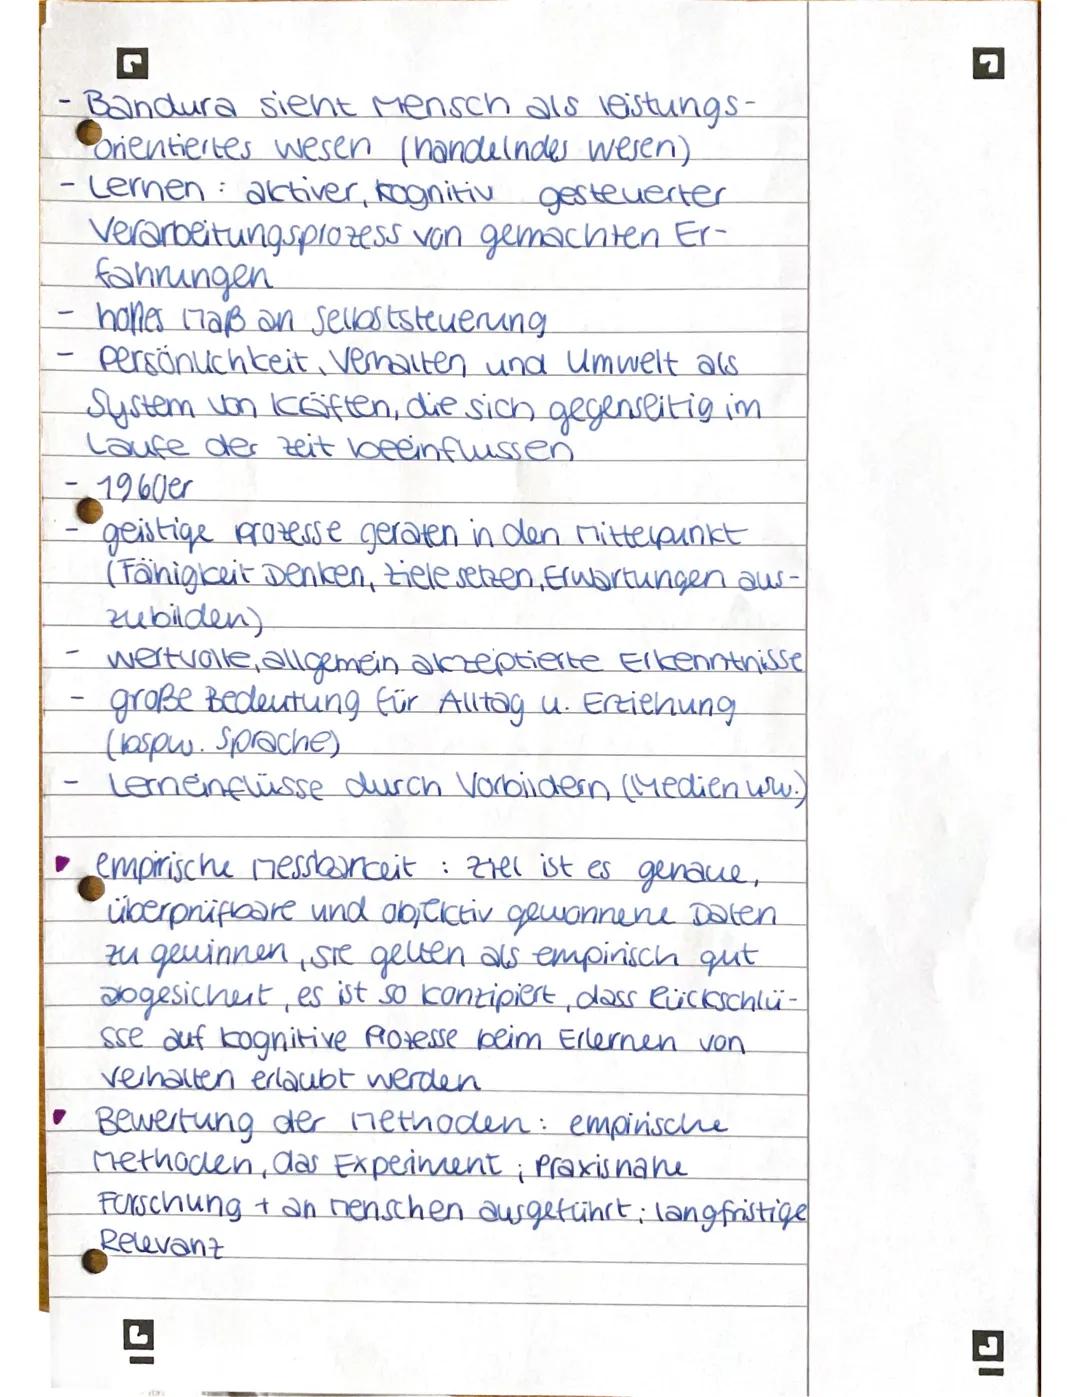 - Bandura sieht Mensch als leistungs-
orientiertes Wesen (handelndes Wesen)
- Lernen : aktiver, kognitiv gesteuerter
Verarbeitungsprozess von gemachten Er-
fahrungen
- hohes Maß an Selbststeuerung
- Persönlichkeit, Verhalten und Umwelt als
System von Kräften, die sich gegenseitig im
Laufe der Zeit beeinflussen
- 1960er
- geistige Prozesse geraten in den Mittelpunkt
(Fähigkeit Denken, Ziele setzen, Erwartungen aus-
zubilden)
- wertvolle, allgemein akzeptierte Erkenntnisse
- große Bedeutung für Alltag u. Erziehung
(bspw. Sprache)
- Lerneinflüsse durch Vorbildern (Medien usw.)
empirische Messbarkeit : Ziel ist es genaue,
überprüfbare und objektiv gewonnene Daten
zu gewinnen, sie gelten als empirisch gut
abgesichert, es ist so konzipiert, dass Rückschlü-
sse auf kognitive Prozesse beim Erlernen von
Verhalten erlaubt werden
Bewertung der Methoden : empirische
Methoden, das Experiment ; Praxisnahe
Forschung + an Menschen ausgeführt ; langfristige
Relevanz